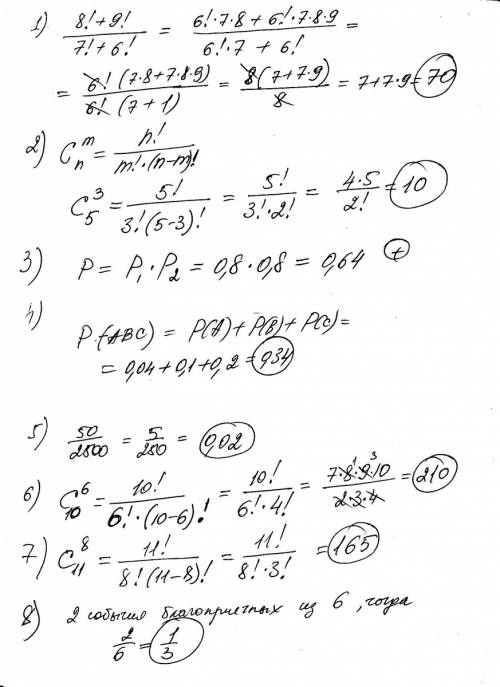 1) (8!+9!)/(7!+6!) = (6!·7·8+6!·7·8·9)/(6!·7+6!) =
= (6!(7·8+7·8·9))/(6!(7+1)) = (8(7+7·9))/8 = 7+7·9=70
2) C_n^m = n!/(m!·(n-m)!)
C_5^3 = 5!/(3!(5-3)!) = 5!/(3!·2!) = (4·5)/2! = 10
3) P = P₁·P₂ = 0,8·0,8 = 0,64 +
4)
P(ABC) = P(A)+P(B)+P(C)=
= 0,04+0,1+0,2=0,34
5) 50/2500 = 5/250 = 0,02
6) C_10^6 = 10!/(6!·(10-6)!) = 10!/(6!·4!) = (7·8·9·10)/(2·3·4) = 210
7) C_11^8 = 11!/(8!(11-8)!) = 11!/(8!·3!) = 165
8) 2 события благоприятных из 6, тогда
2/6 = 1/3